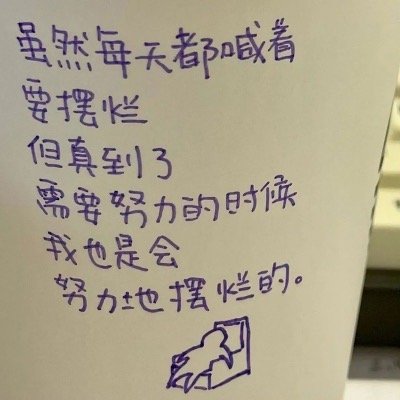 虽然每天都喊着
要摆烂
但真到了
需要努力的时候
我也是会
努力地摆烂的。